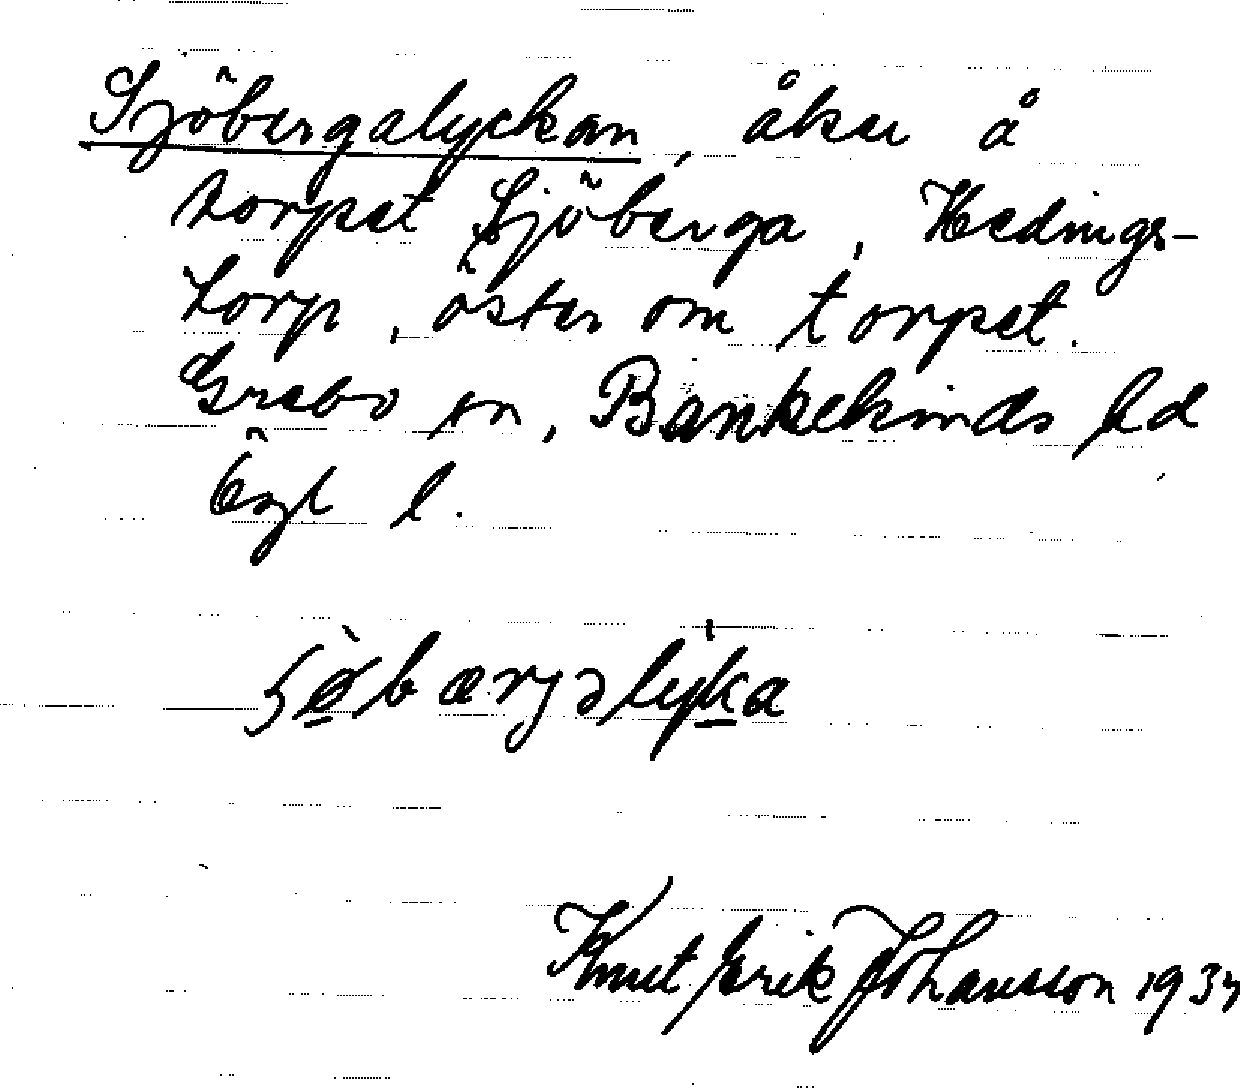 Sjöbergalyckan, åker å
torpet Sjöberga, Hedings-
torp, öster om torpet.
Grebo sn, Bankekinds hd
Ögl l.
Knut Erik Johansson